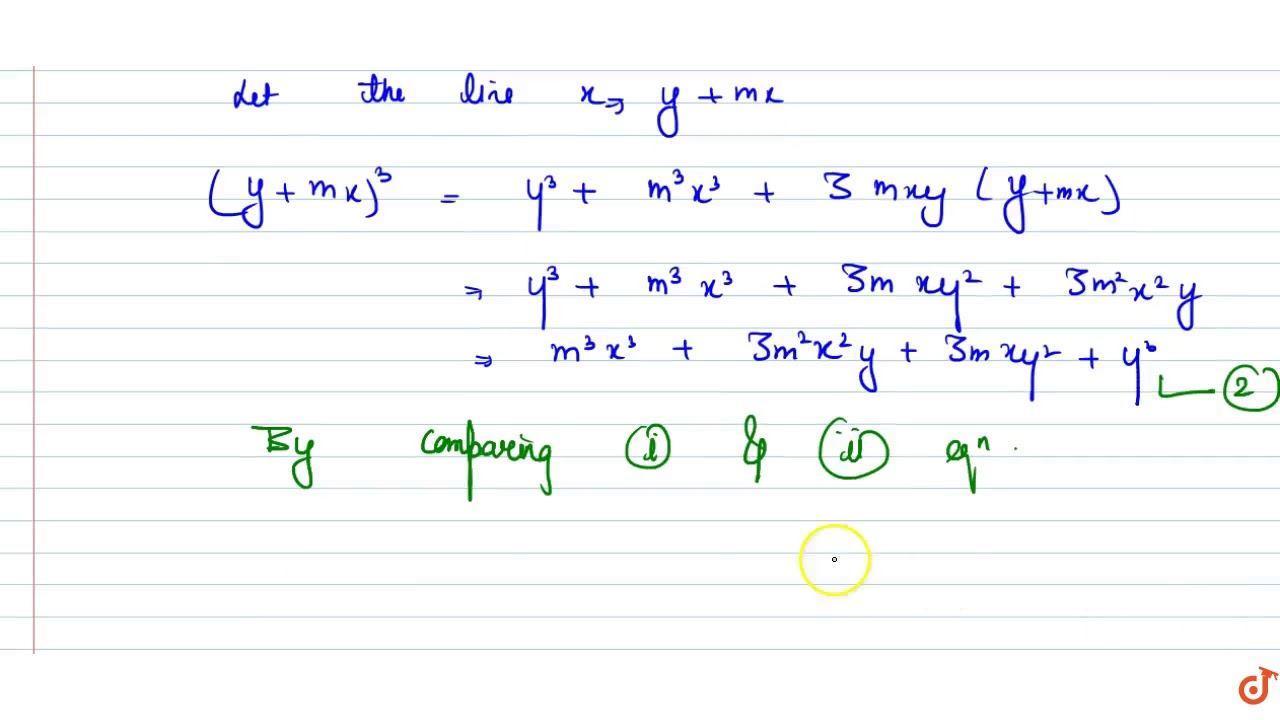 Let the line x ⇒ y + mx
(y + mx)³ = y³ + m³x³ + 3 mxy (y+mx)
⇒ y³ + m³ x³ + 3m xy² + 3m²x² y
⇒ m³x³ + 3m²x²y + 3m xy² + y³
②
By comparing ⓘ & ⓘⓘ eqⁿ .